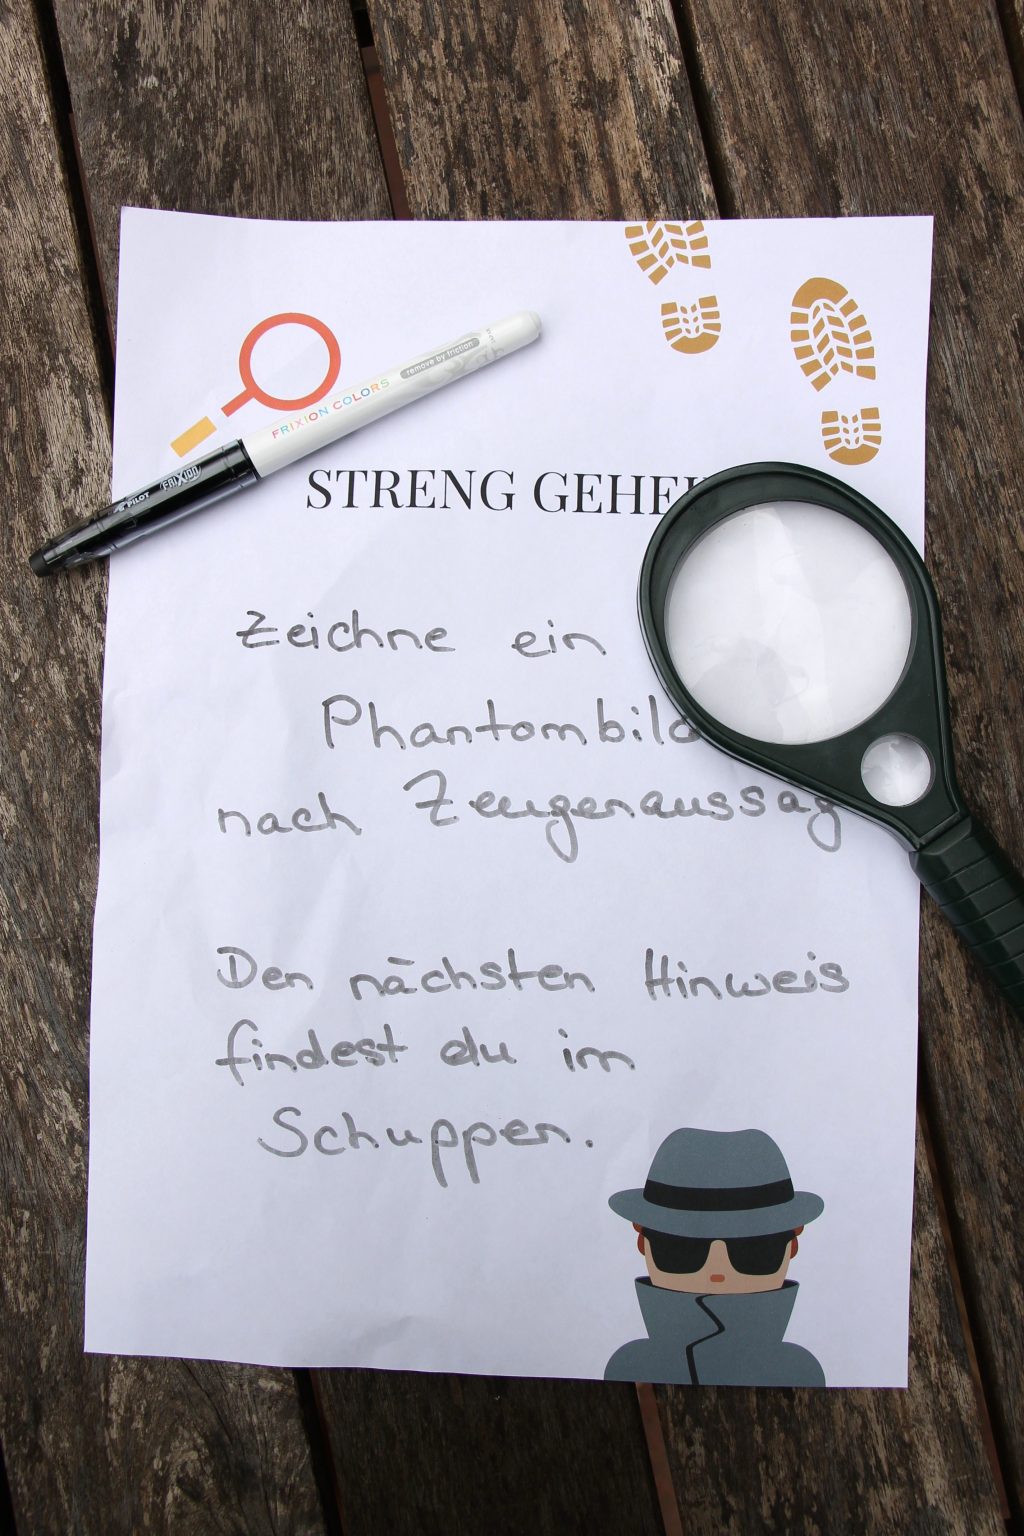 remove by friction
FRIXION COLORS
PILOT FRIXION
STRENG GEHEI
Zeichne ein
Phantombild
nach Zeugenaussag
Den nächsten Hinweis
findest du im
Schuppen.